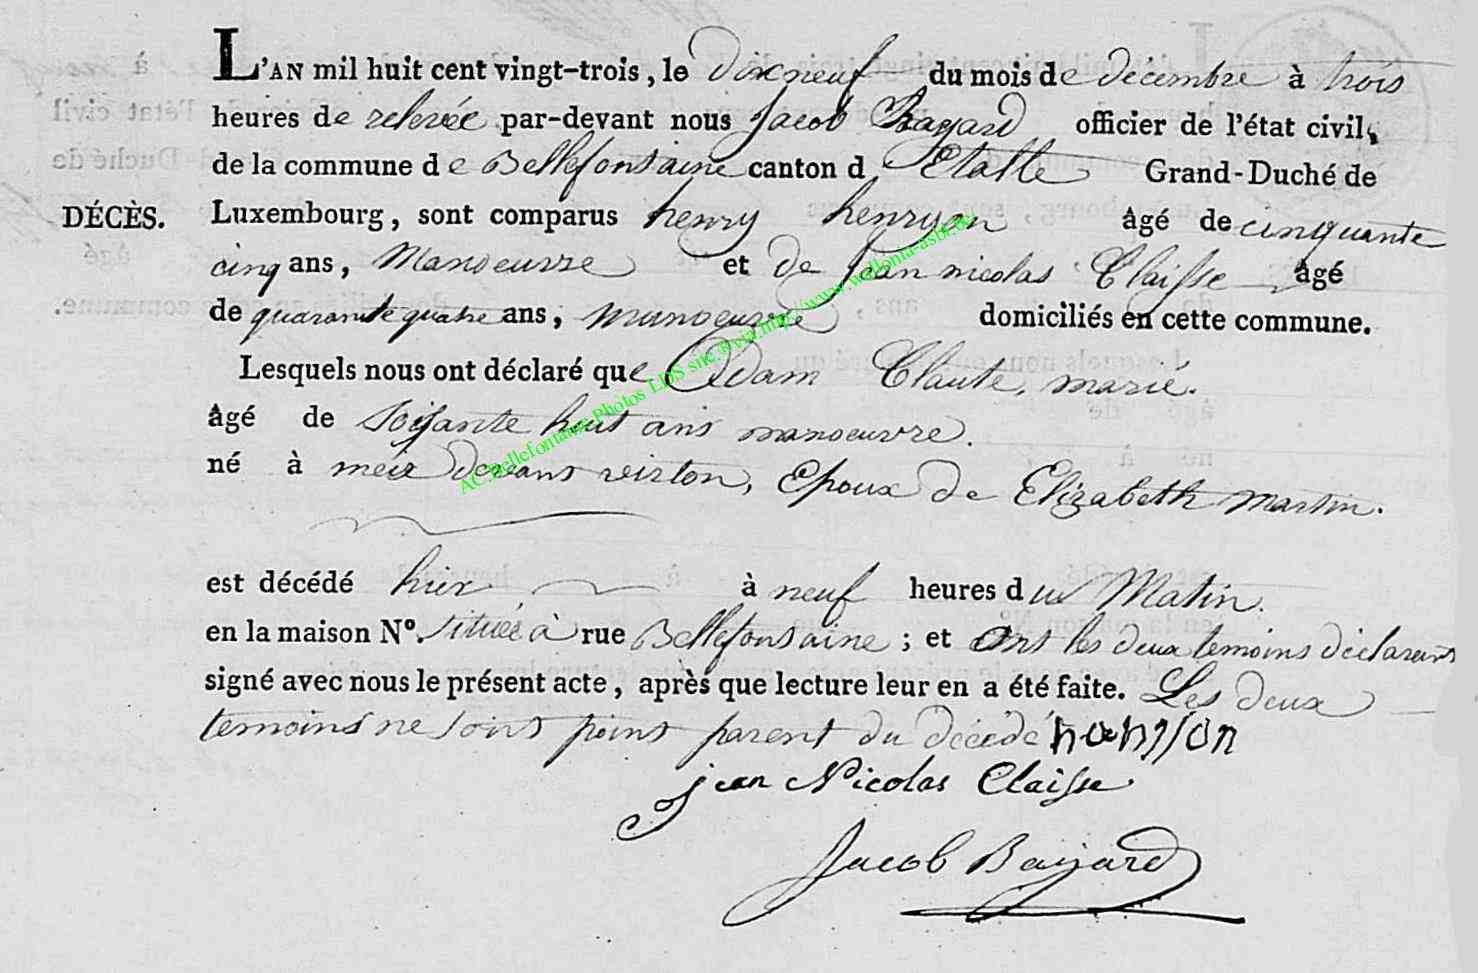 L'AN mil huit cent vingt-trois, le dix neuf du mois de décembre à trois
heures de relevée par-devant nous Jacob Bayard officier de l'état civil,
de la commune de Bellefontaine canton d Etalle Grand-Duché de
DÉCÈS. Luxembourg, sont comparus henry henryon âgé de cinquante
cinq ans, Manoeuvre et de jean nicolas Claisse âgé
de quarante quatre ans, manoeuvre domiciliés en cette commune.
Lesquels nous ont déclaré que Adam Claute, marié.
âgé de soisante huit ans manoeuvre.
né à meix devant virton, Epoux de Elizabeth martin.
est décédé hier à neuf heures du Matin.
en la maison N°. située à rue Bellefontaine ; et ont les deux temoins déclarant
signé avec nous le présent acte, après que lecture leur en a été faite. Les deux
temoins ne sont point parent du décédé
jean Nicolas Claisse
Jacob Bayard